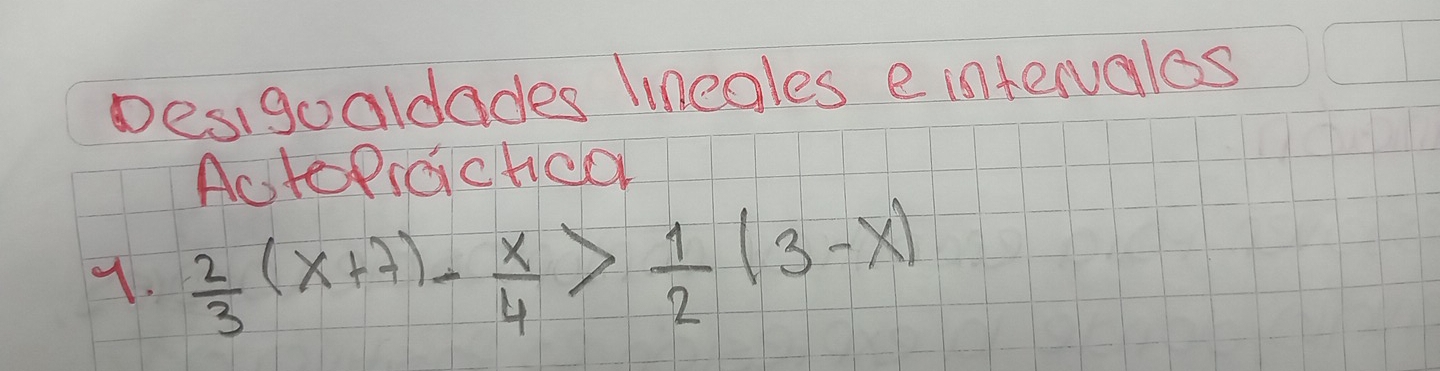 Desigualdades lineales e intervalos
AutoPráctica
1. 2/3 (x+7) - x/4 > 1/2 (3-x)